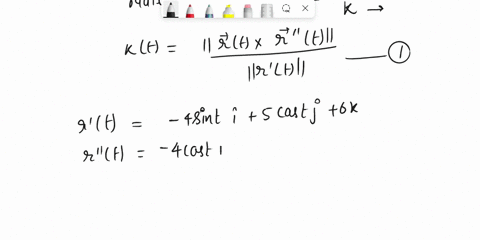 k →
κ(t) = ||r⃗(t) × r⃗''(t)|| / ||r'(t)|| —— ①
r'(t) = -4sint i + 5 cost j + 6k
r''(t) = -4cost